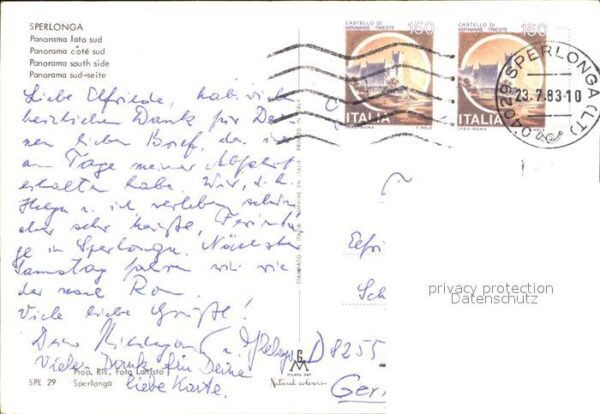 SPERLONGA
Panorama lato sud
Panorama côté sud
Panorama south side
Panorama sud-seite
Liebe Elfriede, hab viel
herzlichen Dank für Dei-
nen lieben Brief, den ich
am Tage meiner Abfahrt
erhalten habe. Wir, d.h.
Helga u. ich verleben schöne
aber sehr heiße Ferienta-
ge in Sperlonga. Nächsten
Samstag fahren wir wie-
der nach Rom.
Viele liebe Grüße!
Deine u. Helga
Vielen Dank für Deine
liebe Karte.
Prop. RIS. Foto
SPE 29 Sperlonga
STAMPATO IN ITALIA
PRINTED IN ITALY
CASTELLO DI
MIRAMARE - TRIESTE
150
ITALIA
I.P.Z.S. ROMA
CASTELLO DI
MIRAMARE - TRIESTE
150
ITALIA
I.P.Z.S. ROMA
04029 SPERLONGA (LT)
23.7.83-10
privacy protection
Datenschutz
D 8255
Ger
Natural colours